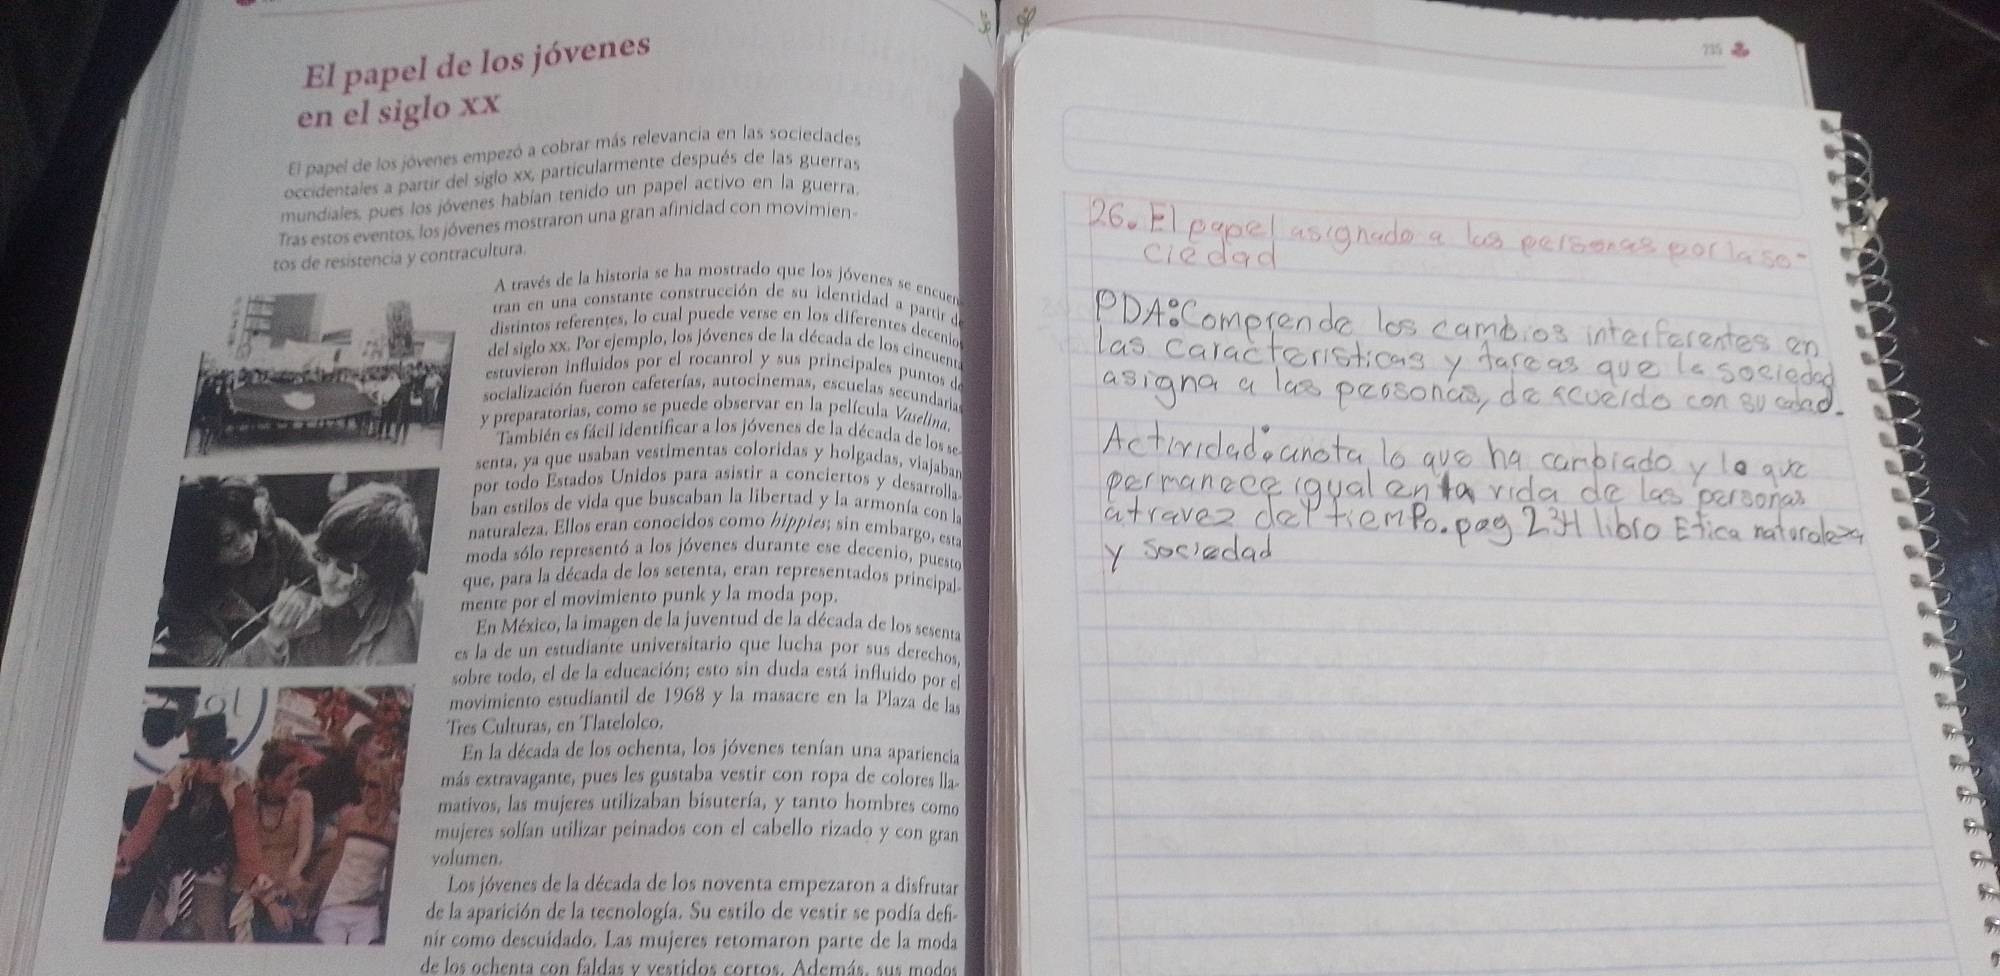 El papel de los jóvenes
en el siglo xx
El papel de los jóvenes empezó a cobrar más relevancia en las sociedades
occidentales a partir del siglo xx, particularmente después de las guerras
mundiales, pues los jóvenes habían tenido un papel activo en la guerra.
Tras estos eventos, los jóvenes mostraron una gran afinidad con movimien-
tos de resistencia y contracultura.
A través de la historia se ha mostrado que los jóvenes se encuen
tran en una constante construcción de su identidad a partir de
distintos referentes, lo cual puede verse en los diferentes decenios
del siglo xx. Por ejemplo, los jóvenes de la década de los cincuenta
estuvieron influidos por el rocanrol y sus principales puntos de
socialización fueron cafeterías, autocinemas, escuelas secundarias
y preparatorias, como se puede observar en la película Vaselina.
También es fácil identificar a los jóvenes de la década de los se
senta, ya que usaban vestimentas coloridas y holgadas, viajaban
por todo Estados Unidos para asistir a conciertos y desarrolla-
ban estilos de vida que buscaban la libertad y la armonía con la
naturaleza. Ellos eran conocidos como hippies; sin embargo, esta
moda sólo representó a los jóvenes durante ese decenio, puesto
que, para la década de los setenta, eran representados principal-
mente por el movimiento punk y la moda pop.
En México, la imagen de la juventud de la década de los sesenta
es la de un estudiante universitario que lucha por sus derechos,
sobre todo, el de la educación; esto sin duda está influido por el
movimiento estudiantil de 1968 y la masacre en la Plaza de las
Tres Culturas, en Tlatelolco.
En la década de los ochenta, los jóvenes tenían una apariencia
más extravagante, pues les gustaba vestir con ropa de colores lla-
mativos, las mujeres utilizaban bisutería, y tanto hombres como
mujeres solían utilizar peinados con el cabello rizado y con gran
volumen.
Los jóvenes de la década de los noventa empezaron a disfrutar
de la aparición de la tecnología. Su estilo de vestir se podía defi-
nir como descuidado. Las mujeres retomaron parte de la moda
de los ochenta con faldas y vestidos cortos. Además, sus modos
235
26. El papel asignado a las personas por la so-
ciedad
PDA: Comprende los cambios interferentes en
las caracteristicas y tareas que la sociedad
asigna a las personas, de acuerdo con su edad.
Actividad: anota lo que ha cambiado y lo que
permanece igual en la vida de las personas
atravez del tiempo. pag 234 libro Etica naturaleza
y sociedad